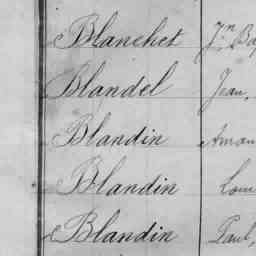 Blanchet Jn Ba
Blandel Jean,
Blandin Aman
Blandin Loui
Blandin Paul,